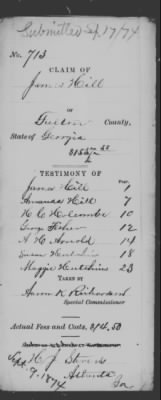 Submitted Sep 17/74
No. 713
CLAIM OF
James Hill
OF
Fulton County,
State of Georgia
TESTIMONY OF
Page.
James Hill 1
Amandas Hill 7
H C Holcombe 10
Geo. Fisher 12
A H Arnold 14
Susan Hutchins 18
Maggie Hutchins 23
TAKEN BY
Aaron K Richardson
Special Commissioner
Actual Fees and Costs, $14.50
Sept 9. 1874
Atlanta
Ga